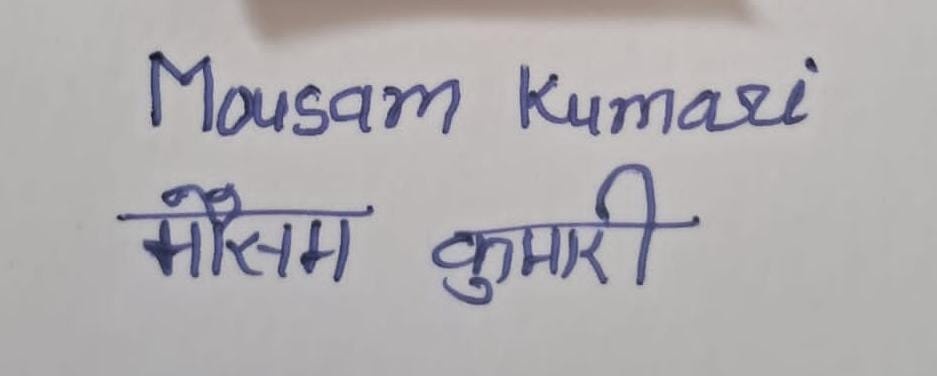 Mousam Kumari
मौसम कुमारी